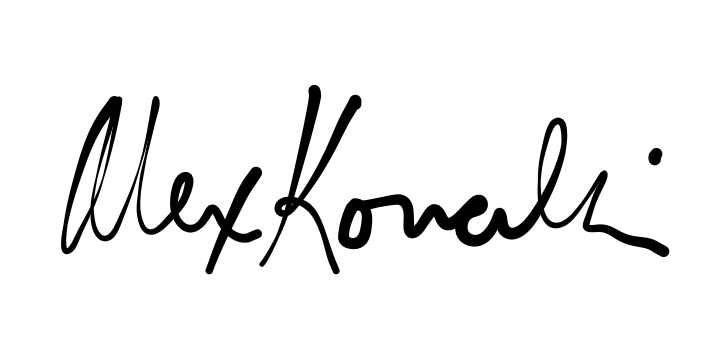 Alex Kowalski